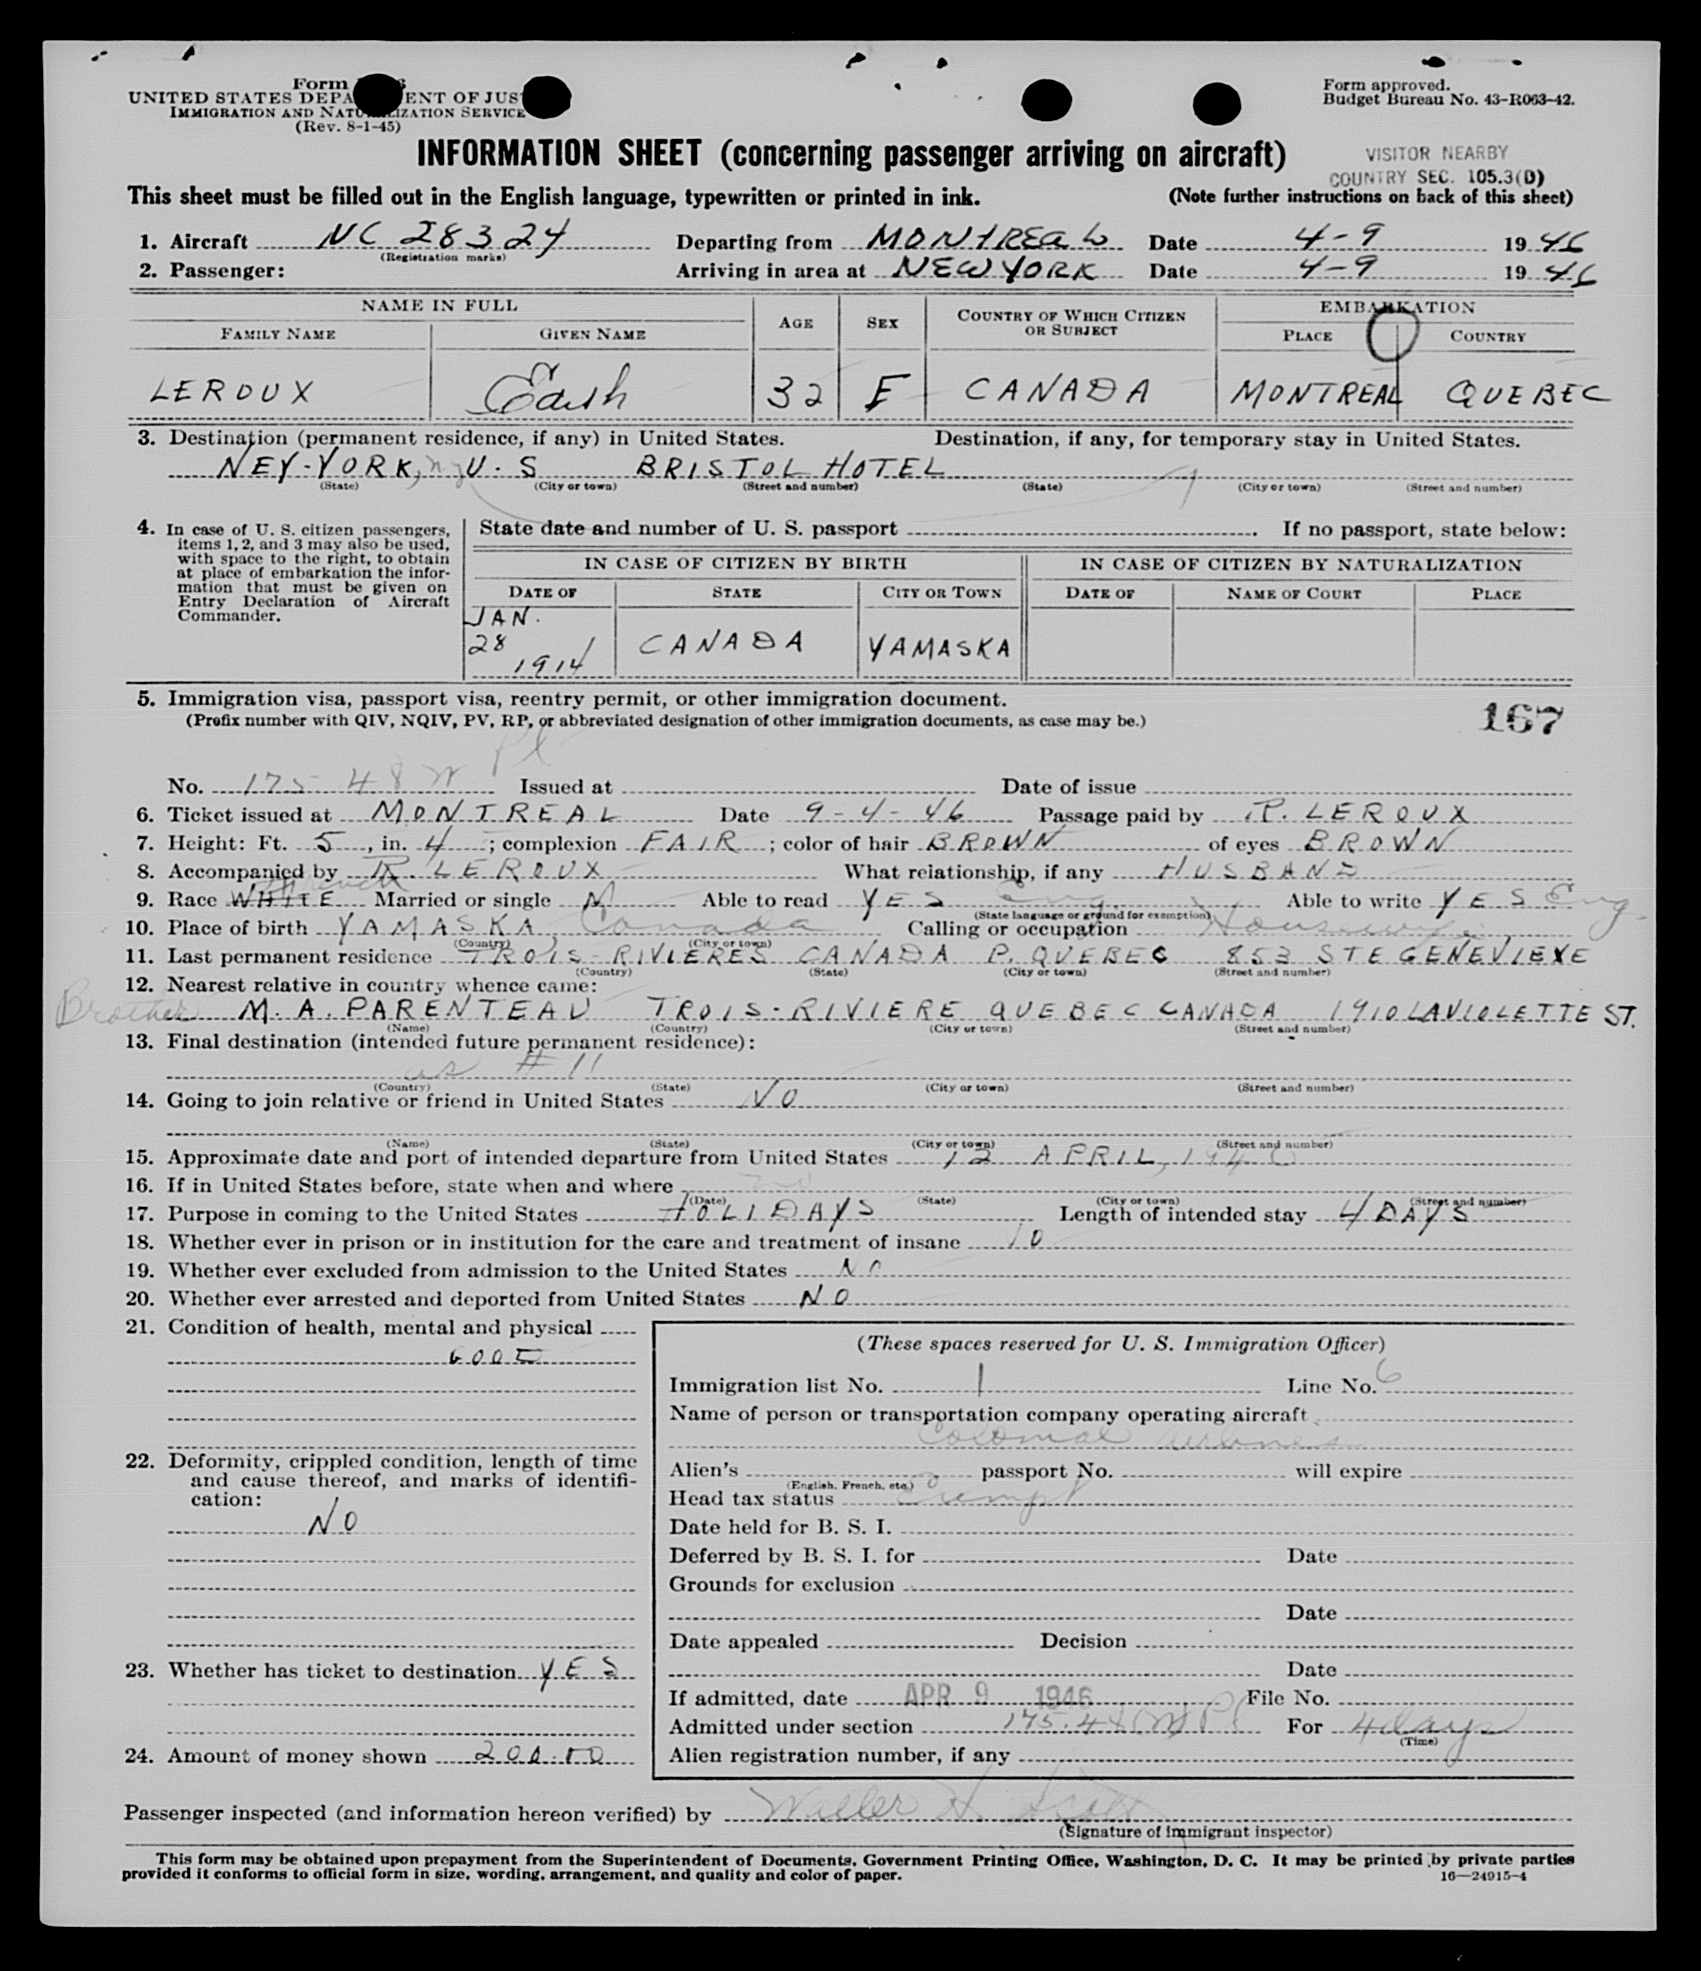 Form
UNITED STATES DEPA ENT OF JUS
IMMIGRATION AND NATU IZATION SERVICE
(Rev. 8-1-45)
Form approved.
Budget Bureau No. 43-R063-42.
INFORMATION SHEET (concerning passenger arriving on aircraft)
VISITOR NEARBY
COUNTRY SEC. 105.3(D)
This sheet must be filled out in the English language, typewritten or printed in ink. (Note further instructions on back of this sheet)
1. Aircraft NC 28324 Departing from MONTREAL Date 4-9 1946
(Registration marks)
2. Passenger: Arriving in area at NEW YORK Date 4-9 1946
NAME IN FULL AGE SEX COUNTRY OF WHICH CITIZEN OR SUBJECT EMBARKATION
FAMILY NAME GIVEN NAME PLACE COUNTRY
LEROUX 32 F CANADA MONTREAL QUEBEC
3. Destination (permanent residence, if any) in United States. Destination, if any, for temporary stay in United States.
NEY-YORK, ny U.S BRISTOL HOTEL
(State) (City or town) (Street and number) (State) (City or town) (Street and number)
4. In case of U. S. citizen passengers, items 1, 2, and 3 may also be used, with space to the right, to obtain at place of embarkation the information that must be given on Entry Declaration of Aircraft Commander.
State date and number of U. S. passport . If no passport, state below:
IN CASE OF CITIZEN BY BIRTH IN CASE OF CITIZEN BY NATURALIZATION
DATE OF STATE CITY OR TOWN DATE OF NAME OF COURT PLACE
JAN. 28 1914 CANADA YAMASKA
5. Immigration visa, passport visa, reentry permit, or other immigration document.
(Prefix number with QIV, NQIV, PV, RP, or abbreviated designation of other immigration documents, as case may be.)
167
No. 175 48 Issued at Date of issue
6. Ticket issued at MONTREAL Date 9-4-46 Passage paid by R. LEROUX
7. Height: Ft. 5, in. 4; complexion FAIR; color of hair BROWN of eyes BROWN
8. Accompanied by R. LEROUX What relationship, if any HUSBAND
9. Race WHITE French Married or single M Able to read YES Eng. Able to write YES Eng.
(State language or ground for exemption)
10. Place of birth YAMASKA Canada Calling or occupation Housewife
(Country) (City or town)
11. Last permanent residence TROIS-RIVIERES CANADA P. QUEBEC 853 STE GENEVIEVE
(Country) (State) (City or town) (Street and number)
12. Nearest relative in country whence came:
Brother M. A. PARENTEAU TROIS-RIVIERE QUEBEC CANADA 1910 LAVIOLETTE ST.
(Name) (Country) (City or town) (Street and number)
13. Final destination (intended future permanent residence):
as # 11
(Country) (State) (City or town) (Street and number)
14. Going to join relative or friend in United States NO
(Name) (State) (City or town) (Street and number)
15. Approximate date and port of intended departure from United States 12 APRIL, 1946
16. If in United States before, state when and where
(Date) (State) (City or town) (Street and number)
17. Purpose in coming to the United States HOLIDAYS Length of intended stay 4 DAYS
18. Whether ever in prison or in institution for the care and treatment of insane NO
19. Whether ever excluded from admission to the United States NO
20. Whether ever arrested and deported from United States NO
21. Condition of health, mental and physical
GOOD
22. Deformity, crippled condition, length of time and cause thereof, and marks of identification:
NO
23. Whether has ticket to destination YES
24. Amount of money shown 200.00
(These spaces reserved for U. S. Immigration Officer)
Immigration list No. 1 Line No. 6
Name of person or transportation company operating aircraft
Colonial Airlines
Alien's passport No. will expire
(English, French, etc.)
Head tax status Exempt
Date held for B. S. I.
Deferred by B. S. I. for Date
Grounds for exclusion
Date
Date appealed Decision
Date
If admitted, date APR 9 1946 File No.
Admitted under section 175.48 For 4 days
(Time)
Alien registration number, if any
Passenger inspected (and information hereon verified) by Walter H.
(Signature of immigrant inspector)
This form may be obtained upon prepayment from the Superintendent of Documents, Government Printing Office, Washington, D. C. It may be printed by private parties
provided it conforms to official form in size, wording, arrangement, and quality and color of paper. 16—24915-4